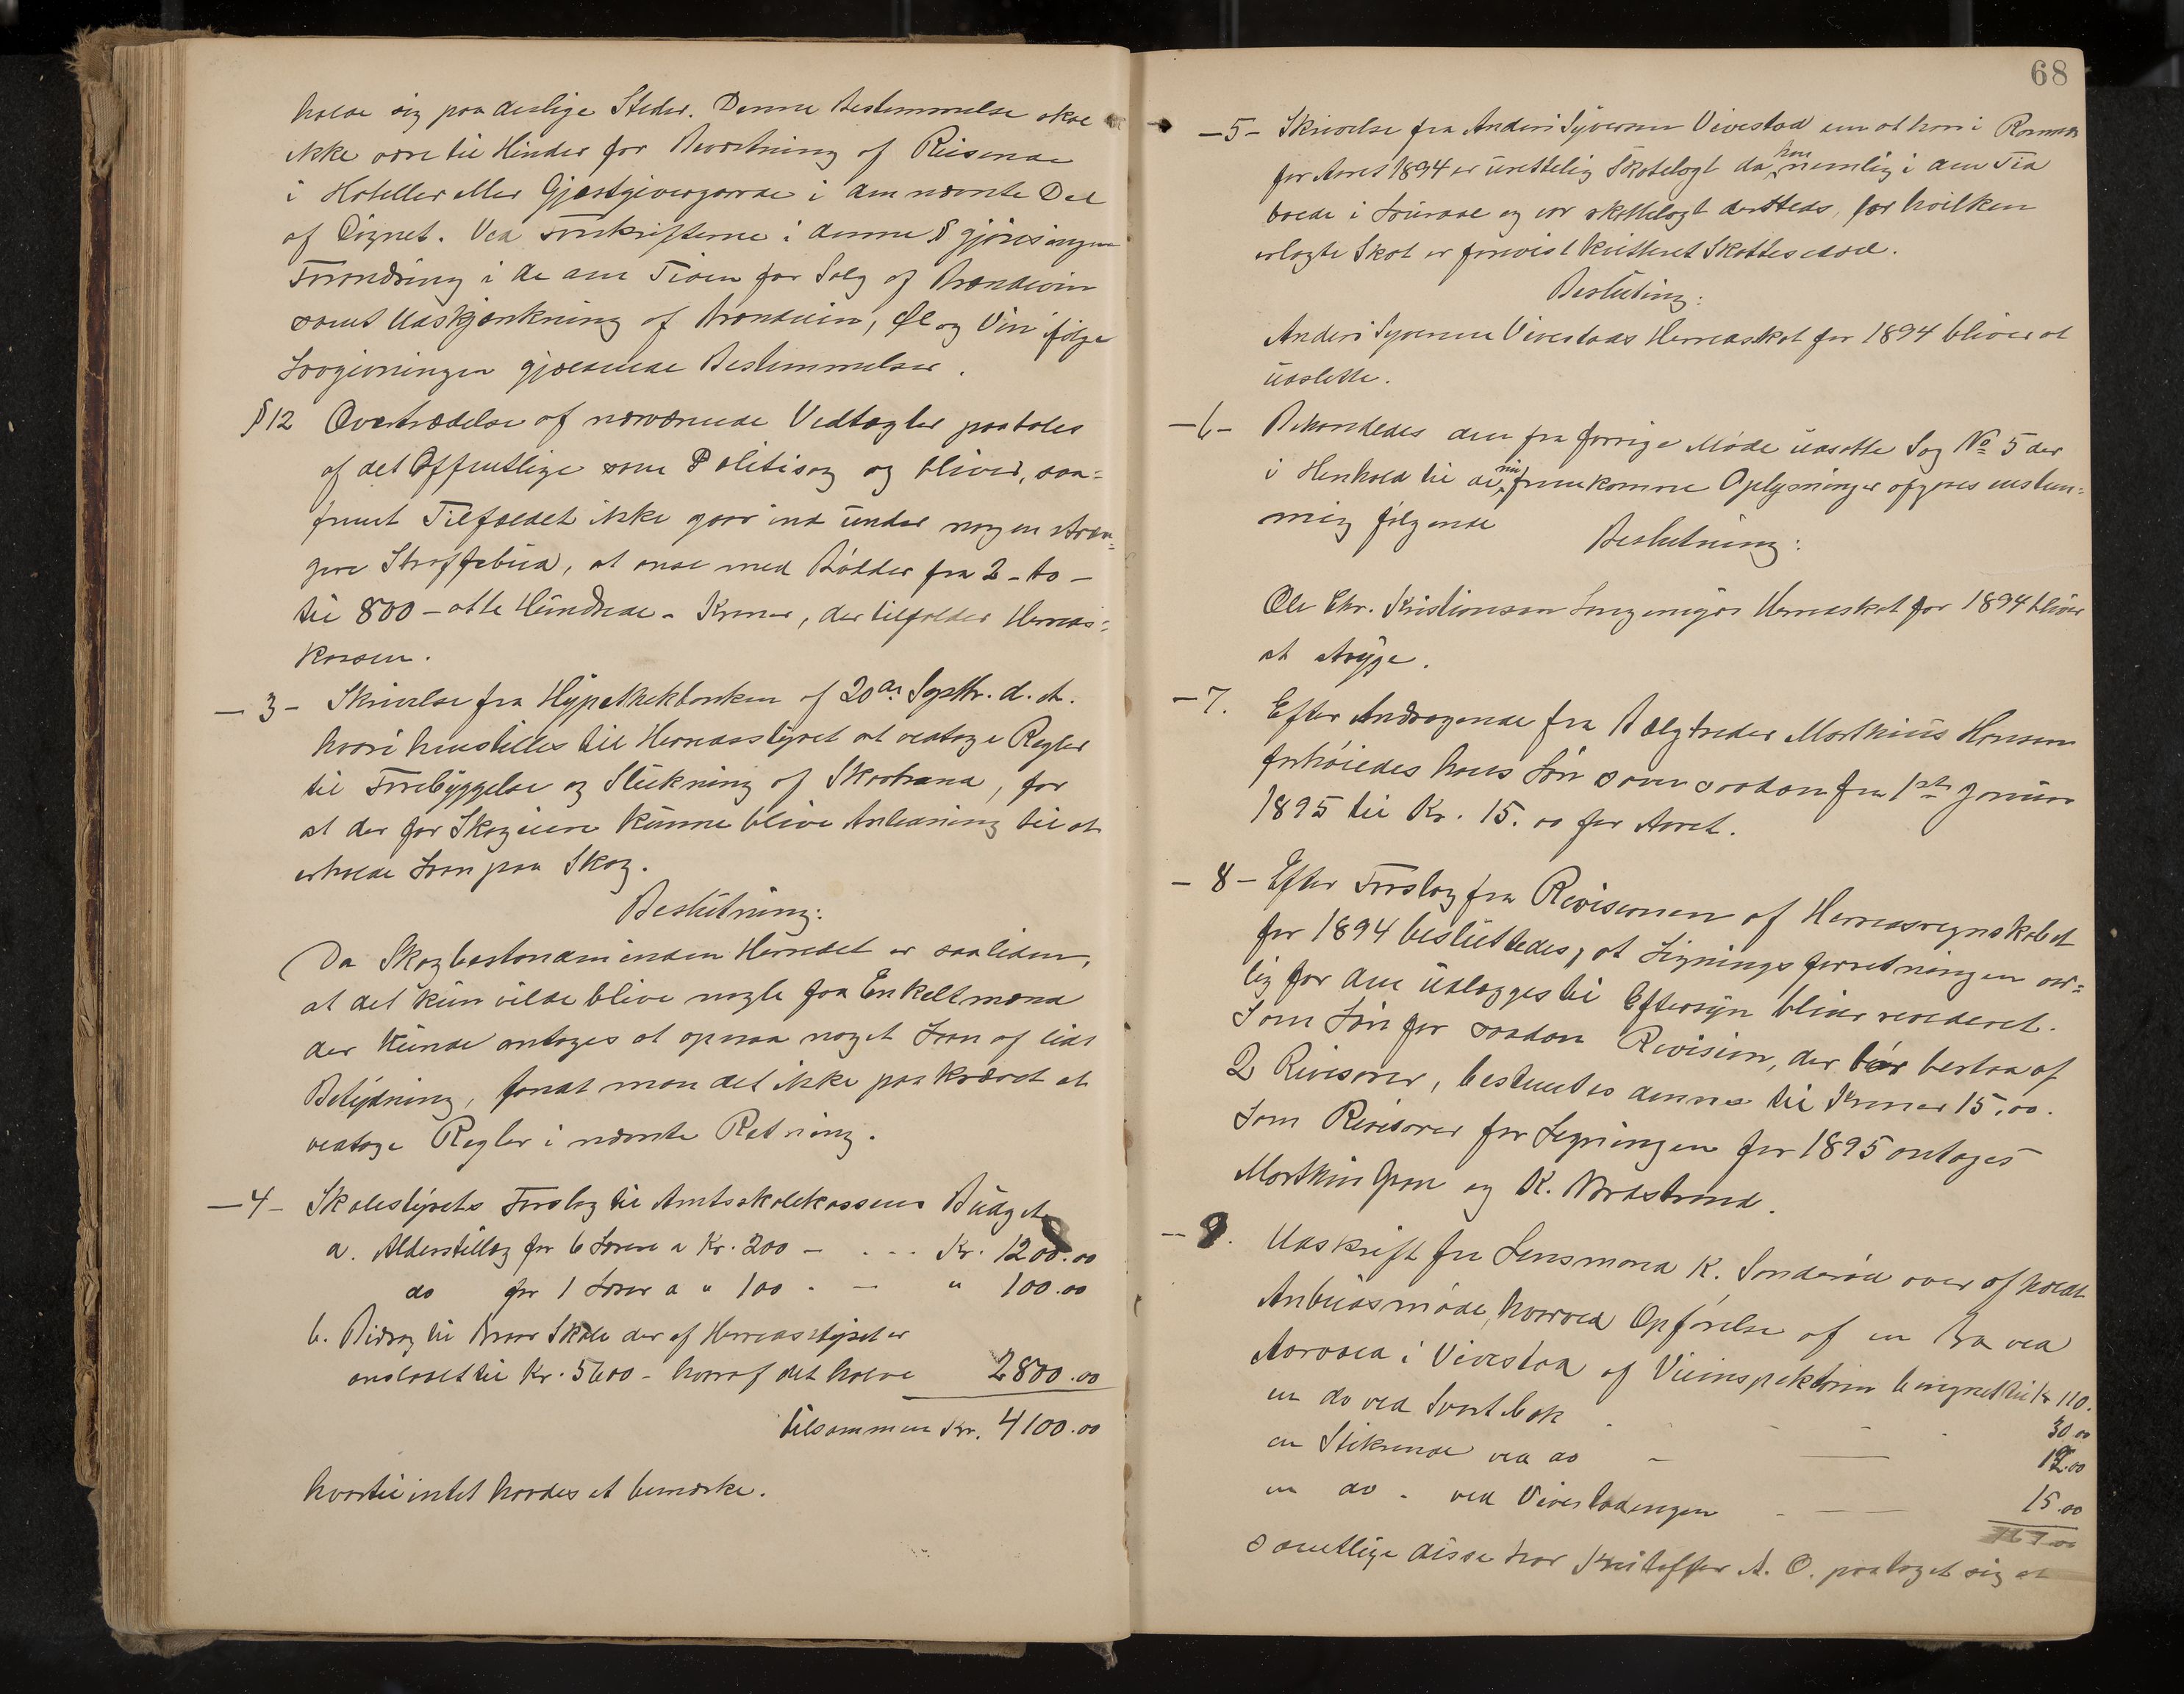 holde sig paa deslige Steder. Denne Bestemmelse skal
ikke være til Hinder for Bevertning af Reisende
i Hoteller eller Gjæstgivergaarde i den nævnte Del
af Døgnet. Ved Forskrifterne i denne § gjøres ingen
Forandring i de om Tiden for Salg af Brændevin
samt Udskjænkning af Brændevin, Øl og Vin ifølge
Lovgivningen gjældende Bestemmelser.
§12 Overtrædelse af nærværende Vedtægter paatales
af det Offentlige som Politisag og bliver, saa=
fremt Tilfældet ikke gaar ind under nogen stræn=
gere Straffebud, at anse med Bøder fra 2 - to -
til 800 - otte Hundrede - Kroner, der tilfalder Herreds=
kassen.
- 3 - Skrivelse fra Hypothekbanken af 20de Septbr. d. A.
hvori henstilles til Herredsstyret at vedtage Regler
til Forebyggelse og Slukning af Skovbrand, for
at der for Skogeiere kunne blive Anledning til at
erholde Laan paa Skog.
Beslutning:
Da Skogbestanden inden Herredet er saa liden,
at det kun vilde blive nogle faa Enkeltmænd
der kunde antages at opnaa noget Laan af lidt
Betydning, fandt man det ikke paakrævet at
vedtage Regler i nævnte Retning.
- 4 - Skolestyrets Forslag til Amtsskolekassens Budget
a. Alderstillæg for 6 Lærere a Kr. 200 - . - - Kr. 1200.00
do for 1 Lærer a " 100 . - " 100.00
b. Bidrag til Skole der af Herredsstyret er
anslaaet til Kr. 5600 - hvoraf det halve 2800.00
tilsammen Kr. 4100.00
hvortil intet havdes at bemærke.
68
- 5 - Skrivelse fra Anders Syversen Vivestad om at han i Ramnæs
for Aaret 1894 er urettelig Skatelagt da han nemlig i den Tid
boede i Laurdal og var skattelagt dersteds, for hvilken
erlagte Skat er forevist kvitteret Skatteseddel.
Beslutning:
Anders Syversen Vivestads Herredsskat for 1894 bliver at
udslette.
- 6 - Behandledes den fra forrige Møde udsatte Sag No 5 der
i Henhold til de nu fremkomne Oplysninger afgaves enstem=
mig følgende
Beslutning:
Ole Chr. Kristiansen Herredsskat for 1894 bliver
at stryge.
- 7. Efter Andragende fra Bælgtræder Marthinius Hansen
forhøiedes hans Løn som saadan fra 1ste Januar
1895 til Kr. 15.00 for Aaret.
- 8 - Efter Forslag fra Revisionen af Herredsregnskabet
for 1894 besluttedes, at Ligningsforretningen aar=
lig før den udlægges til Eftersyn bliver revideret.
Som Løn for saadan Revision, der bør bestaa af
2 Revisorer, bestemtes dennes til Kroner 15.00.
Som Revisorer for Ligningen for 1895 antoges
Marthin Gran og K. Nordstrand.
- 9. Udskrift fra Lensmand K. Sønderød over afholdt
Anbudsmøde, hvorved Opførelse af en Bro ved
i Vivestad af Veiinspektøren beregnet til Kr 110.
en do ved Svartebæk - - - 30.00
en Stikrende ved do - — 12.00
en do . ved Vivestadengen - — 15.00
167.00
samtlige disse har Kristoffer A. O. paataget sig at